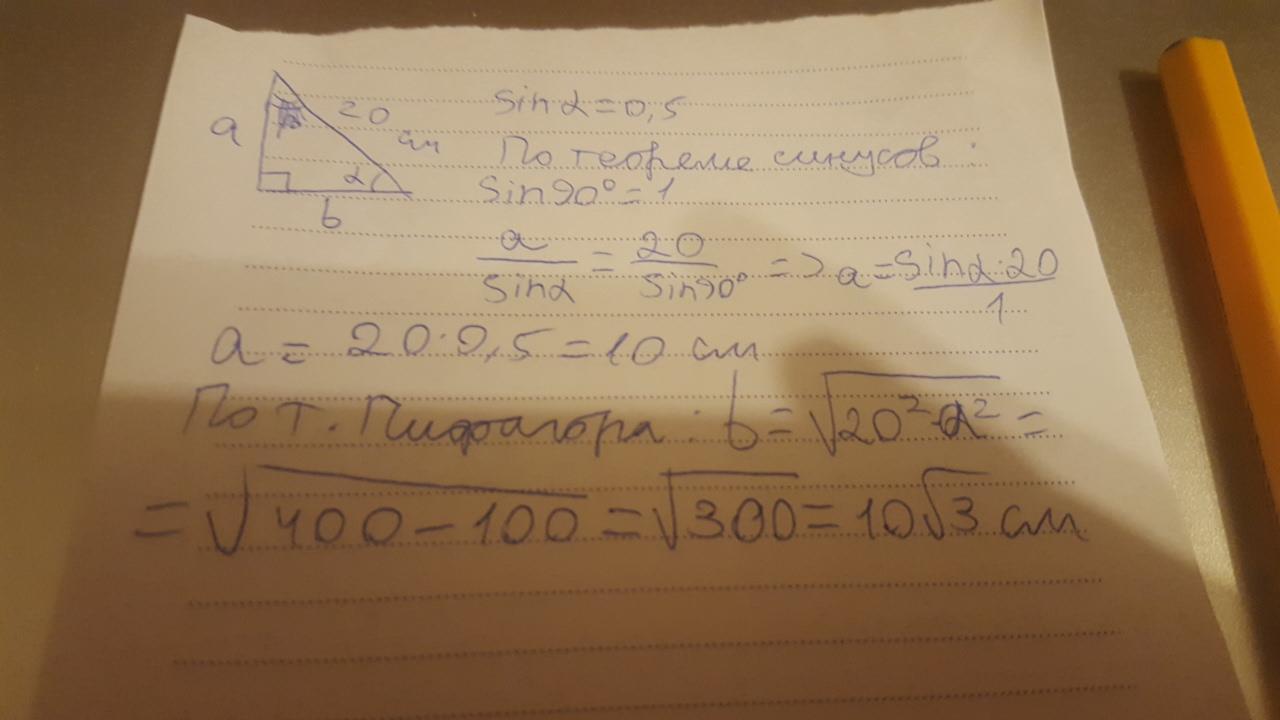 a
20
см
α
b
sinα=0,5
По теореме синусов:
Sin90°=1
a/sinα = 20/sin90° => a = sinα·20/1
a = 20·0,5 = 10 см
По т. Пифагора: b = √20²-a² =
= √400-100 = √300 = 10√3 см